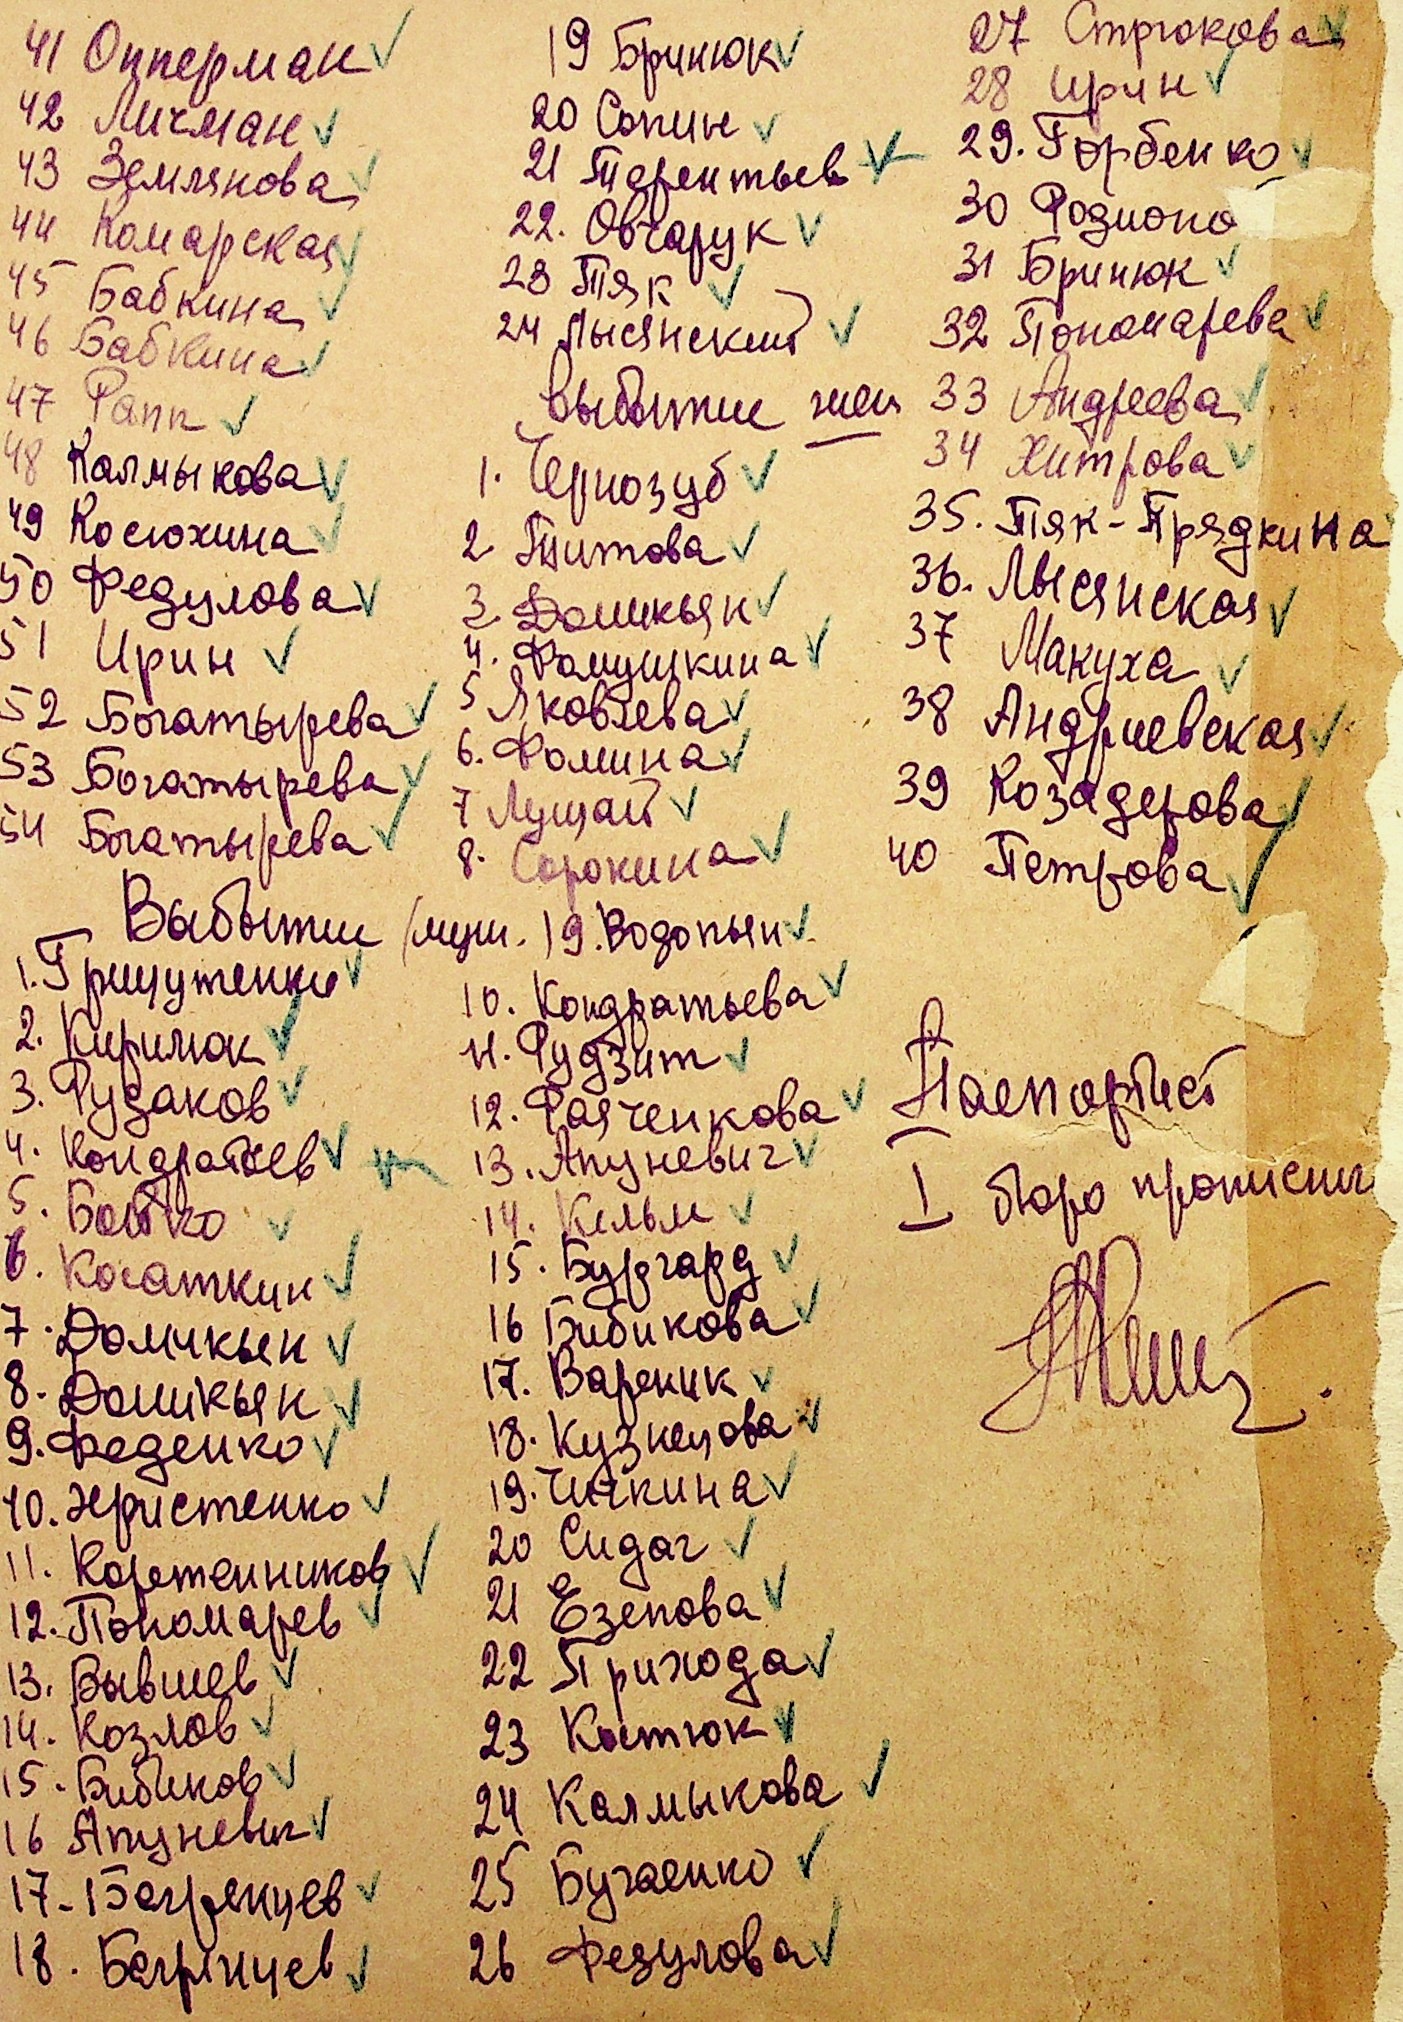 41 Опперман
42 Личман
43 Землянова
44 Комарская
45 Бабкина
46 Бабкина
47 Рапп
48 Калмыкова
49 Косюхина
50 Федулова
51 Ирин
52 Богатырева
53 Богатырева
54 Богатырева
Выбытие (муж.)
1. Грищутенко
2. Кирилюк
3. Рудаков
4. Кондратьев
5. Бойко
6. Косаткин
7. Домикьян
8. Домикьян
9. Феденко
10. Христенко
11. Коретенников
12. Пономарев
13. Вывшев
14. Козлов
15. Бибиков
16 Апуневич
17. Багрянцев
18. Багрянцев
19 Бринюк
20 Сопин
21 Терентьев
22. Овчарук
23 Тяк
24 Лысянский
Выбытие жен
1. Чернозуб
2 Титова
3. Домикьян
4. Фомушкина
5 Яковлева
6. Фомина
7 Лущай
8. Сорокина
9. Водопьян
10. Кондратьева
11. Рудзит
12. Раяченкова
13. Апуневич
14. Кельм
15. Бургард
16 Бибикова
17. Вареник
18. Кузнецова
19. Чичкина
20 Сидаг
21 Езепова
22 Прихода
23 Костюк
24 Калмыкова
25 Бугаенко
26 Федулова
27 Стрюкова
28 Ирин
29. Горбенко
30 Родионо
31 Бринюк
32 Пономарева
33 Андреева
34 Хитрова
35. Тяк-Прядкина
36. Лысянская
37 Макуха
38 Андриевская
39 Козадерова
40 Петрова
Паспортист
I бюро прописки